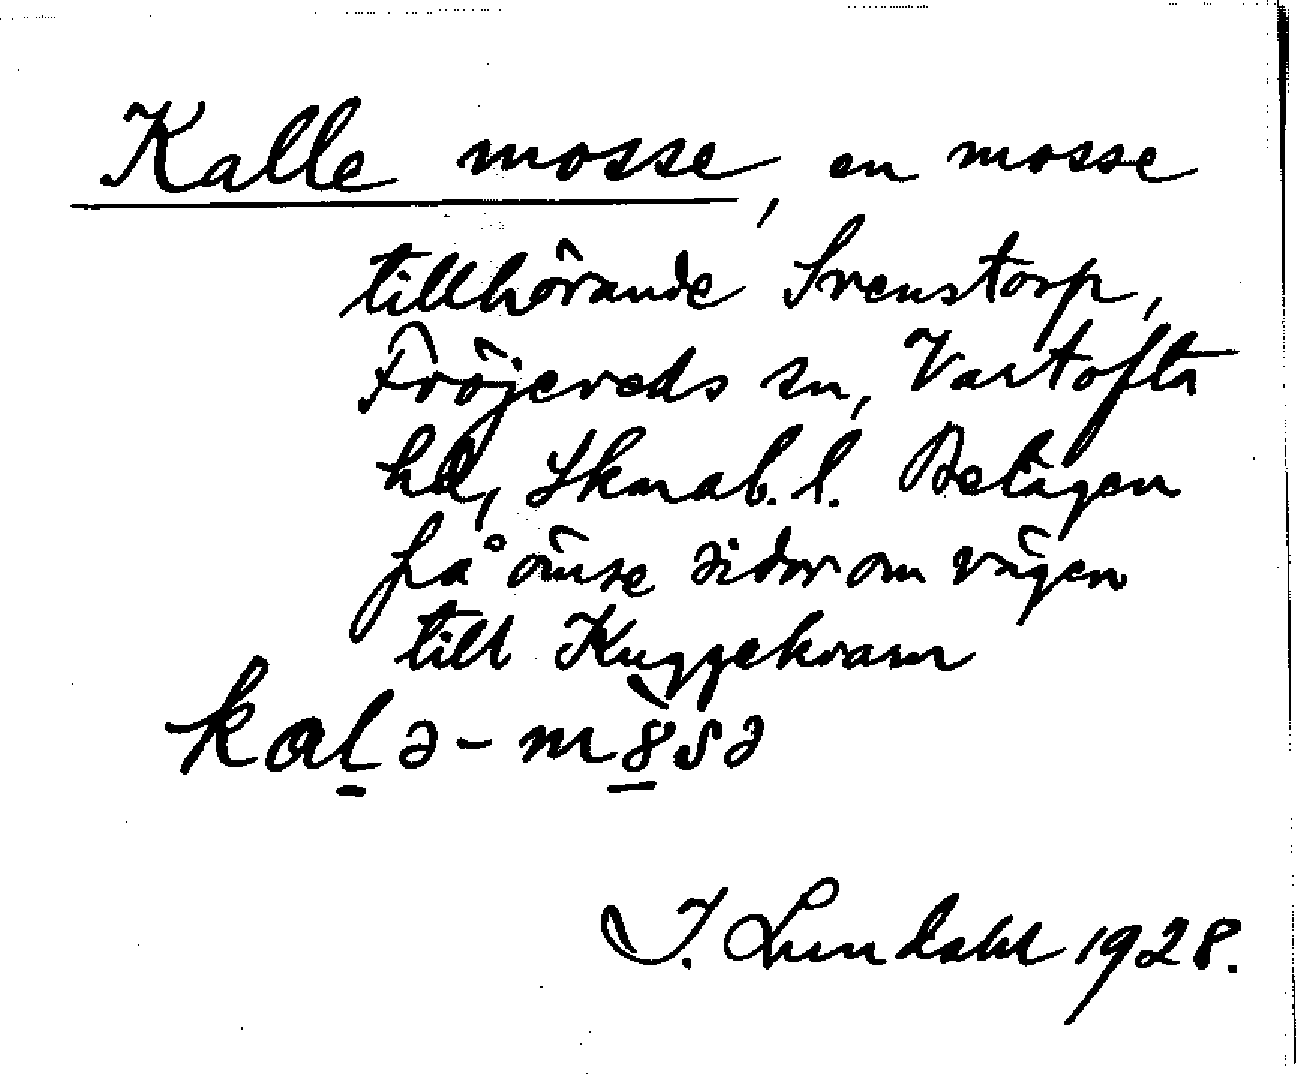 Kalle mosse, en mosse
tillhörande Svenstorp,
Fröjereds sn, Vartofta
hd, Skarab. l. Belägen
på ömse sidor om vägen
till Kuggekvarn
kalə-m8sə
I. Lundahl 1928.